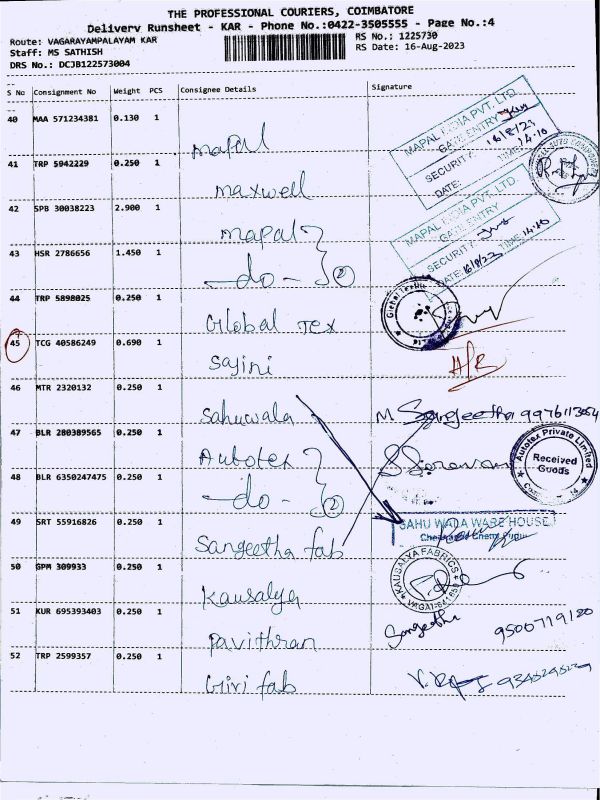 THE PROFESSIONAL COURIERS, COIMBATORE
Delivery Runsheet - KAR - Phone No.:0422-3505555 - Page No.:4
Route: VAGARAYAMPALAYAM KAR
RS No.: 1225730
Staff: MS SATHISH
RS Date: 16-Aug-2023
DRS No.: DCJB122573004
S No Consignment No Weight PCS Consignee Details Signature
40 MAA 571234381 0.130 1
mapal
MAPAL INDIA PVT. LTD
GATE ENTRY
SECURITY 16/8/23
DATE: TIME 14.10
41 TRP 5942229 0.250 1
maxwell
42 SPB 30038223 2.900 1
mapal
MAPAL INDIA PVT. LTD.
GATE ENTRY
SECURITY
DATE: 16/8/23 TIME 14.10
43 HSR 2786656 1.450 1
-do- 2
44 TRP 5898025 0.250 1
Global Tex
Global
45 TCG 40586249 0.690 1
Sajini
46 MTR 2320132 0.250 1
Sahuwala
M. Sangeetha
47 BLR 280389565 0.250 1
Autotex
Autotex Private Limited
Received
Goods
48 BLR 6350247475 0.250 1
-do- 2
49 SRT 55916826 0.250 1
Sangeetha fab
SAHU WALA WARE HOUSE
50 GPM 309933 0.250 1
Kausalya
KAUSALYA FABRICS
51 KUR 695393403 0.250 1
Pavithran
Sangeetha
52 TRP 2599357 0.250 1
Giri fab